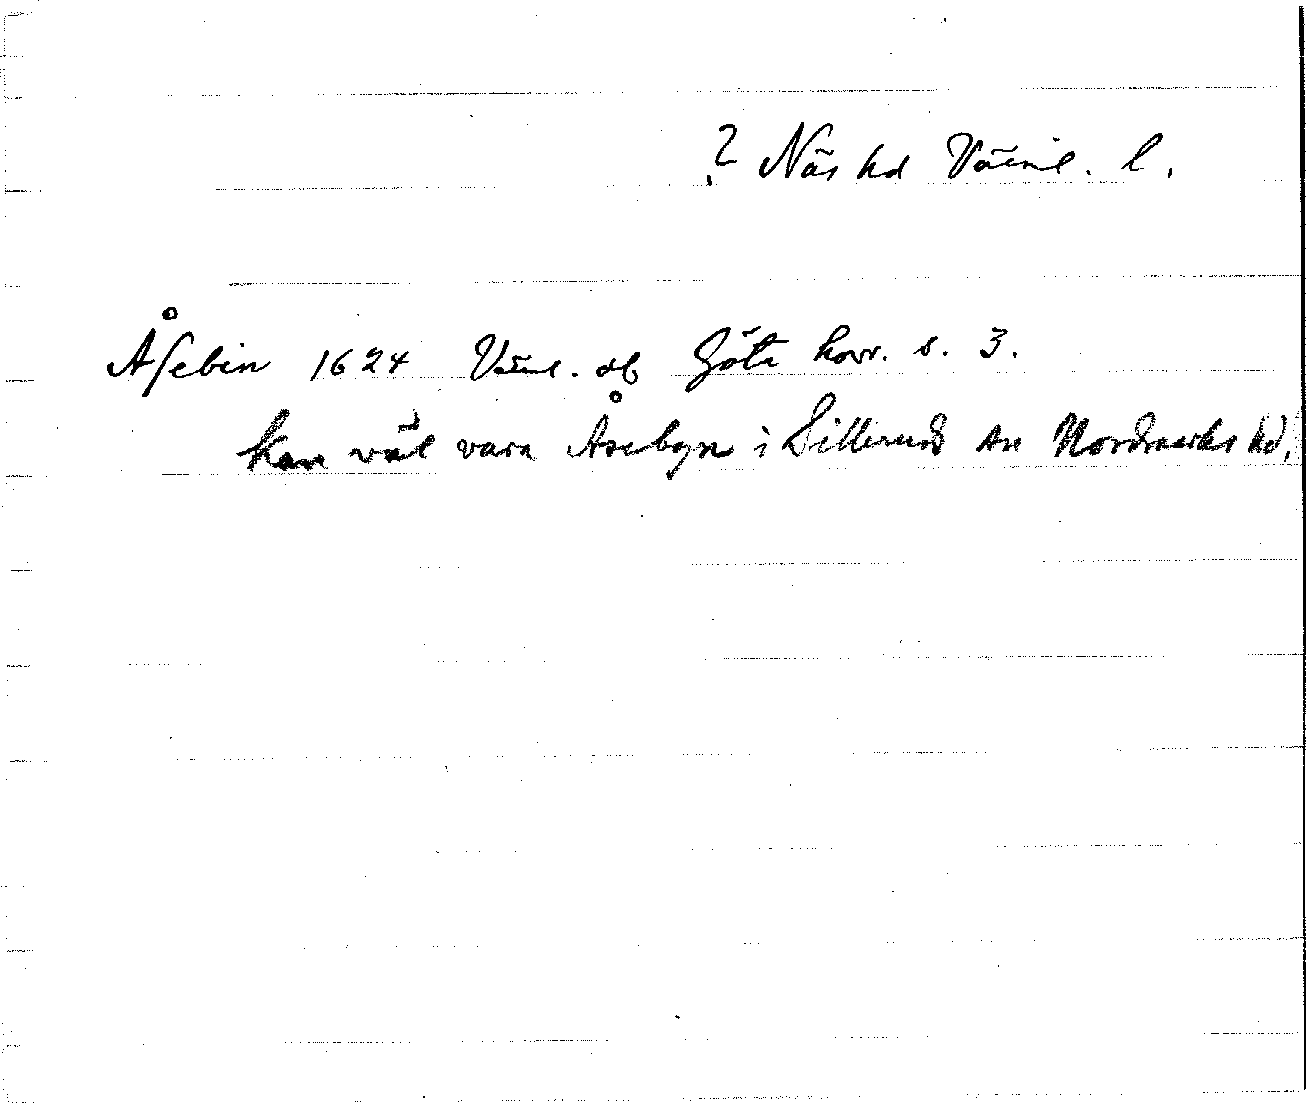 ? Näs hd Värml. l.
Åsebin 1624 Värml. db Göta hovr. s. 3.
kan väl vara Åsebyn i Sillerud sn Nordmarks hd.